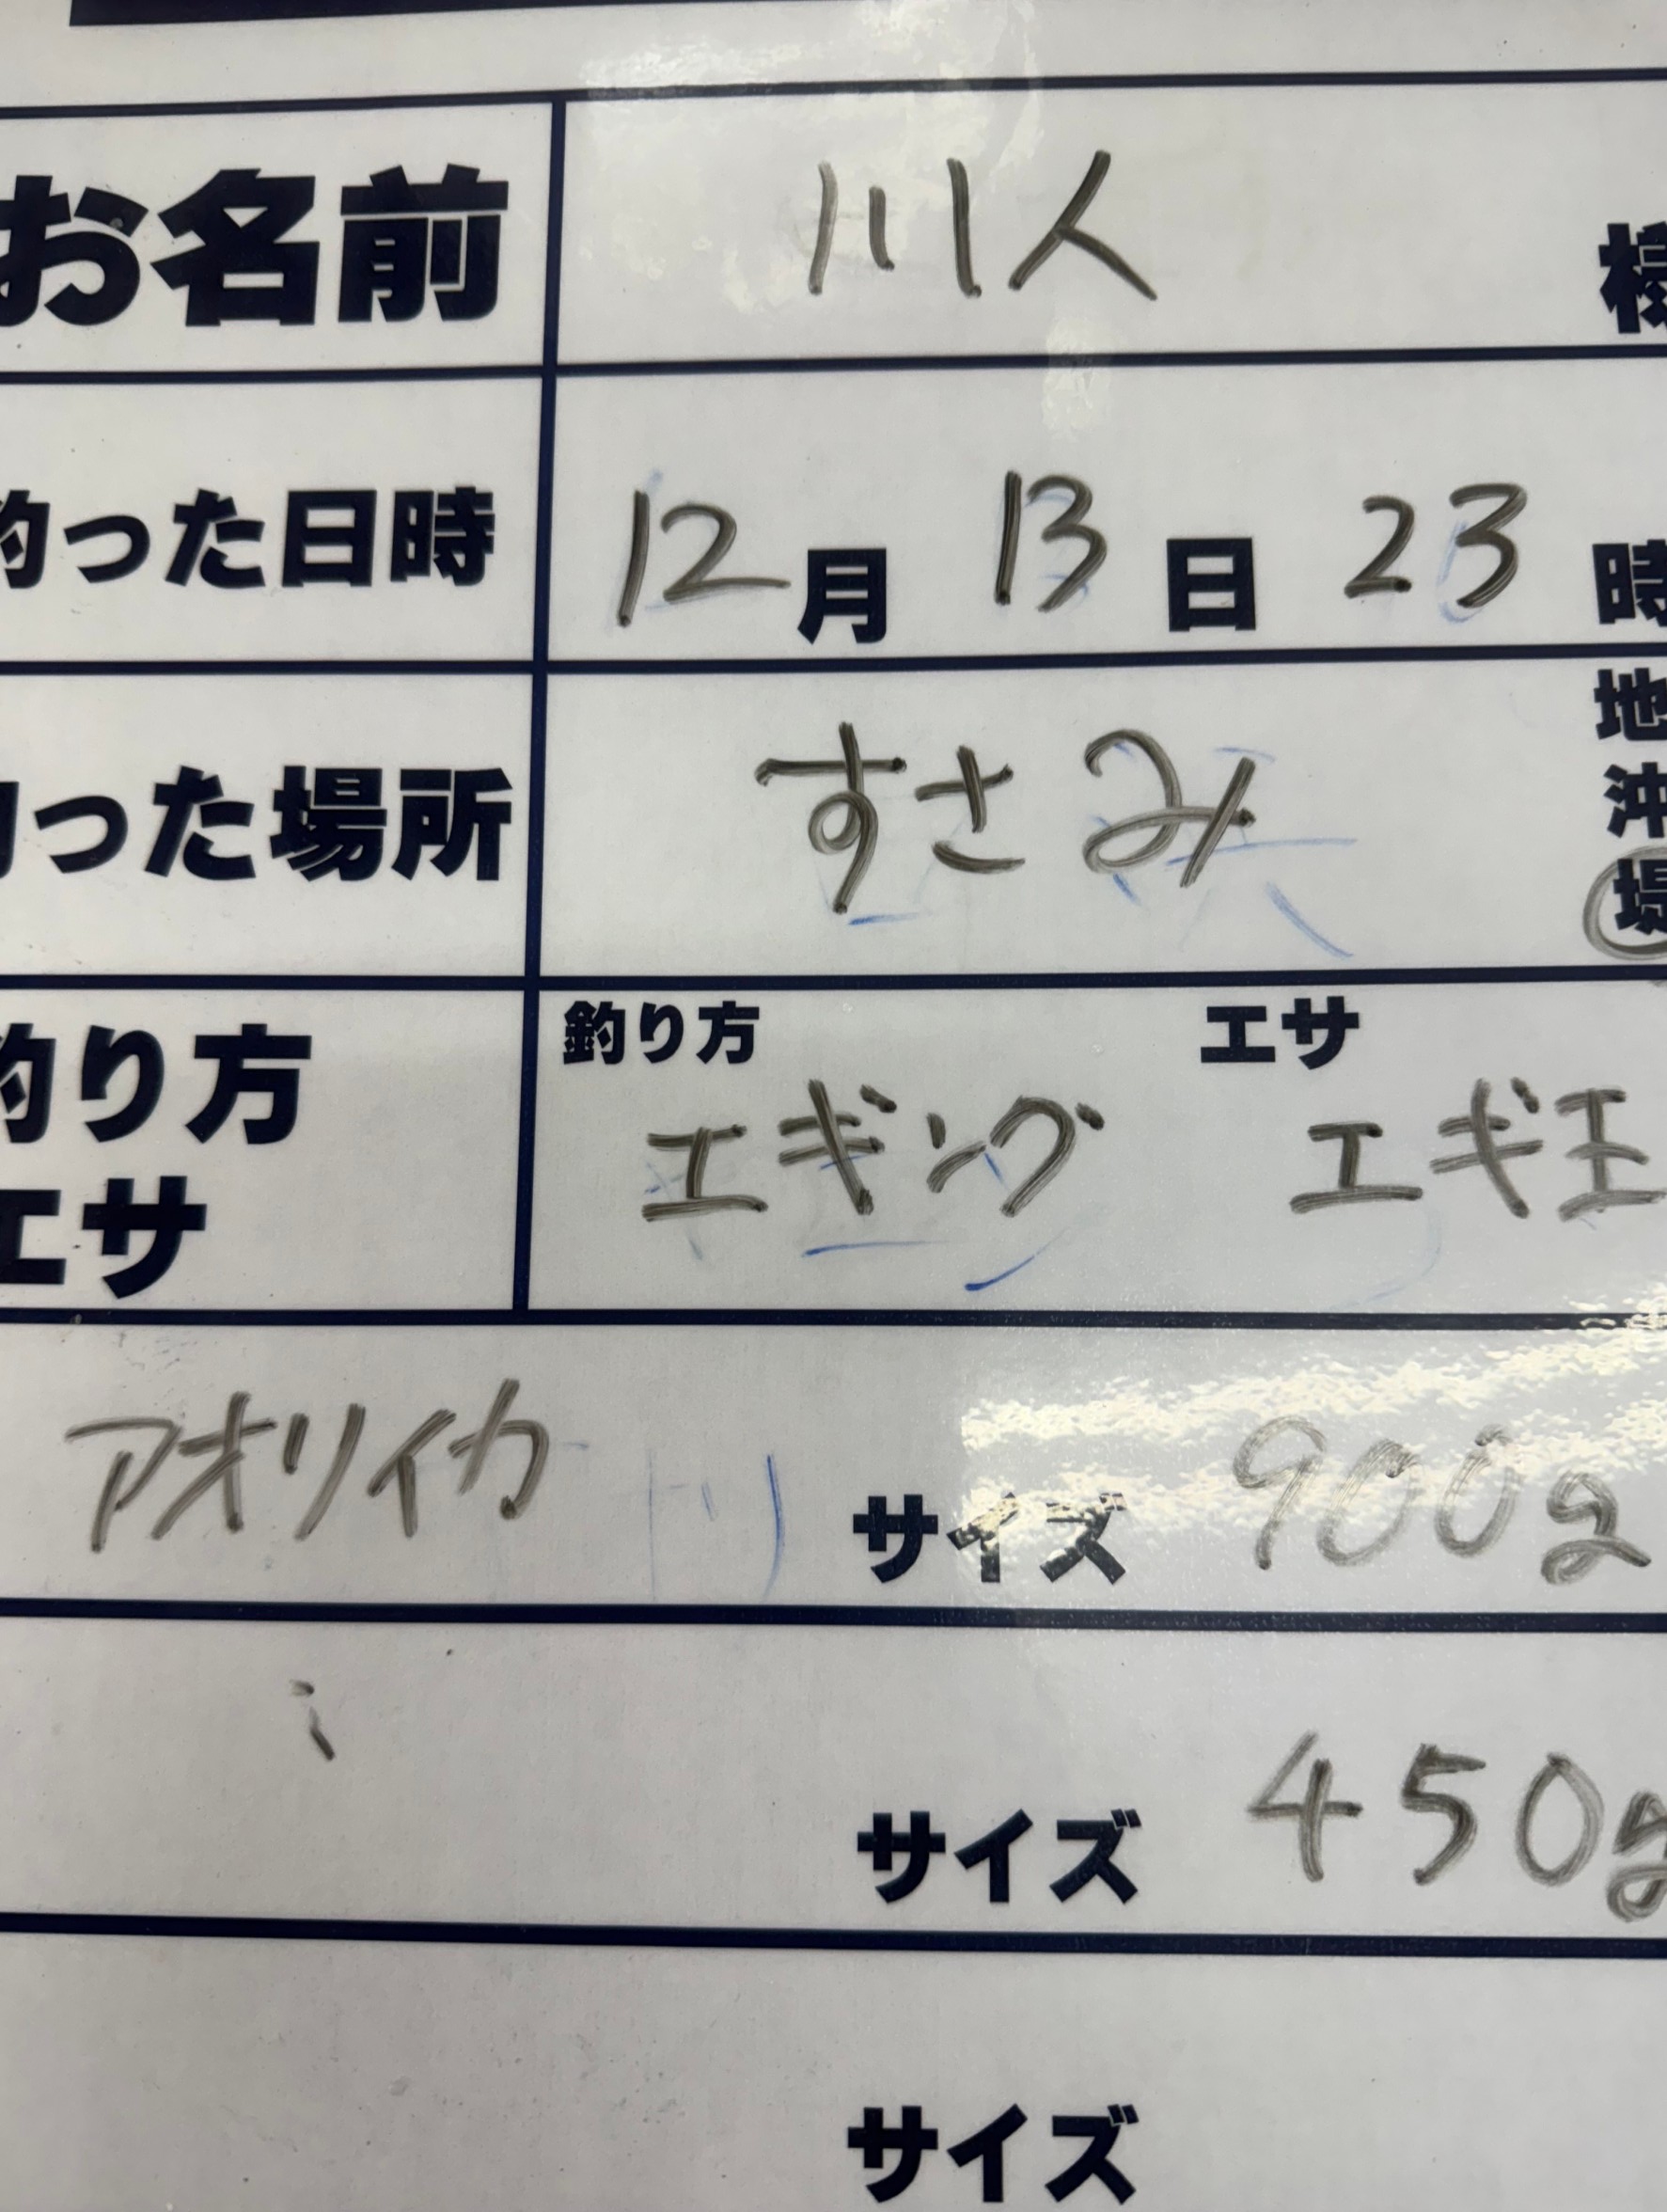 お名前 川人 様
釣った日時 12月 13日 23時
釣った場所 すさみ 地
沖
堤
釣り方 エサ
釣り方 エギング エギ王
エサ
アオリイカ サイズ 900g
〃 サイズ 450g
サイズ